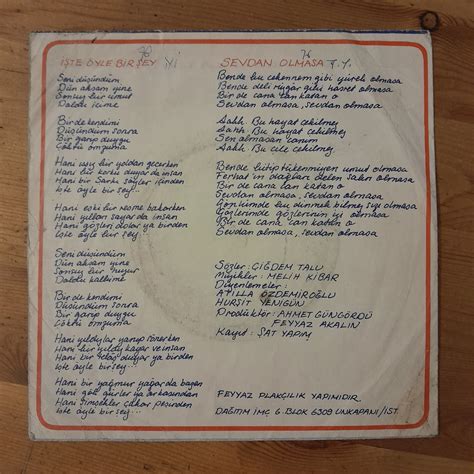 İŞTE ÖYLE BİR ŞEY
Seni düşündüm
Dün akşam yine
Sonsuz bir umut
Doldu içime
Bir de kendimi
Düşündüm sonra
Bir garip duygu
Çöktü omzuma
Hani ıssız bir yoldan geçerken
Hani bir korku duyar da insan
Hani bir şarkı söyler içinden
İşte öyle bir şey...
Hani eski bir resme bakarken
Hani yılları sayar da insan
Hani gözleri dolar ya birden
İşte öyle bir şey...
Seni düşündüm
Dün akşam yine
Sonsuz bir huzur
Doldu kalbime
Bir de kendimi
Düşündüm sonra
Bir garip duygu
Çöktü omzuma
Hani yıldızlar yanıp sönerken
Hani bir yıldız kayar ve insan
Hani bir telaş duyar ya birden
İşte öyle bir şey...
Hani bir yağmur yağar da bazen
Hani gök gürler ya arkasından
Hani şimşekler çakar peşinden
İşte öyle bir şey...
SEVDAN OLMASA T.Y.
Bende bu cehennem gibi yürek olmasa
Bende deli rüzgar gibi hasret olmasa
Bir de cana can katan o
Sevdan olmasa, sevdan olmasa
Sahh Bu hayat çekilmez
Sahh Bu hayat çekilmez
Sen olmasan canım
Sahh Bu çile çekilmez
Bende bitip tükenmeyen umut olmasa
Ferhat'ın dağları delen sabrı olmasa
Bir de cana can katan o
Sevdan olmasa, sevdan olmasa
Gönlümde bu dinmek bilmez sızı olmasa
Gözlerimde gözlerinin izi olmasa
Bir de cana can katan o
Sevdan olmasa, sevdan olmasa
Sözler: ÇİĞDEM TALU
Müzikler: MELİH KİBAR
Düzenlemeler:
ATİLLA ÖZDEMİROĞLU
HURŞİT YENİGÜN
Prodüktör: AHMET GÜNGÖRDÜ
FEYYAZ AKALIN
Kayıt: ŞAT YAPIM
FEYYAZ PLAKÇILIK YAPIMIDIR
DAĞITIM İMÇ 6. BLOK 6309 UNKAPANI/İST.